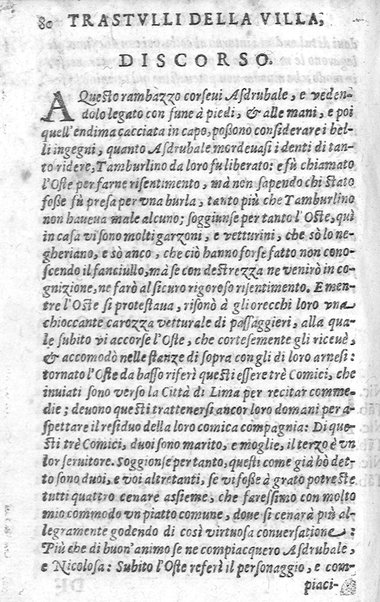 80 TRASTVLLI DELLA VILLA,
DISCORSO.
A Questo rambazzo corseui Asdrubale, e veden-
dolo legato con fune à piedi, & alle mani, e poi
quell'endima cacciata in capo, possono considerare i bel-
li ingegni, quanto Asdrubale mordeuasi i denti di tan-
to ridere, Tamburlino da loro fu liberato: e fù chiamato
l'Oste per farne risentimento, mà non sapendo chi stato
fosse fù presa per vna burla, tanto più che Tamburlino
non haueua male alcuno; soggiunse per tanto l'Oste, quì
in casa vi sono molti garzoni, e vetturini, che sò lo ne-
gheriano, e sò anco, che ciò hanno forse fatto non cono-
scendo il fanciullo, mà se con destrezza ne venirò in co-
gnizione, ne farò al sicuro rigoroso risentimento. E men-
tre l'Oste si protestaua, risonò à gliorecchi loro vna
chioccante carozza vetturale di passaggieri, alla qua-
le subito vi accorse l'Oste, che cortesemente gli riceuè,
& accomodò nelle stanze di sopra con gli di loro arnesi:
tornato l'Oste da basso riferì questi essere trè Comici, che
inuiati sono verso la Città di Lima per recitar comme-
die; deuono questi trattenersi ancor loro domani per a-
spettare il residuo della loro comica compagnia: Di que-
sti trè Comici, duoi sono marito, e moglie, il terzo è vn
lor seruitore. Soggionse per tanto, questi come già hò det-
to sono duoi, e voi altretanti, se vi fosse à grato potreste
tutti quattro cenare assieme, che faressimo con molto
mio commodo vn piatto comune, doue si cenarà più al-
legramente godendo di così virtuosa conuersatione:
Più che di buon'animo se ne compiacquero Asdrubale,
e Nicolosa: Subito l'Oste referì il personaggio, e com-
piaci-